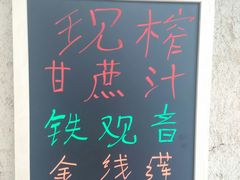 现榨
甘蔗汁
铁观音
金线莲